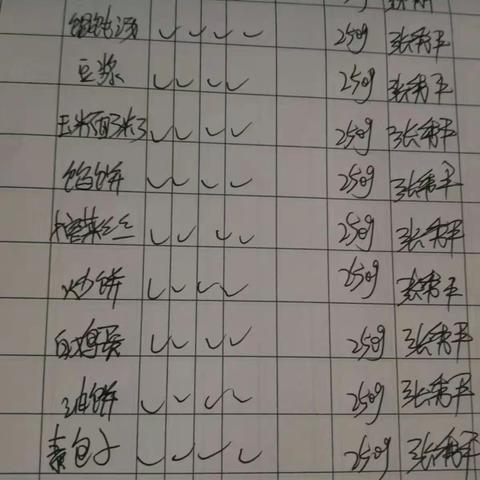 馄饨汤 ✓ ✓ ✓ ✓ 250g 张秀平
豆浆 ✓ ✓ ✓ ✓ 250g 张秀平
玉米面 ✓ ✓ ✓ ✓ 250g 张秀平
馅饼 ✓ ✓ ✓ ✓ 250g 张秀平
丝 ✓ ✓ ✓ ✓ 250g 张秀平
炒饼 ✓ ✓ ✓ ✓ 250g 张秀平
白鸡蛋 ✓ ✓ ✓ ✓ 250g 张秀平
油饼 ✓ ✓ ✓ ✓ 250g 张秀平
素包子 ✓ ✓ ✓ ✓ 250g 张秀平